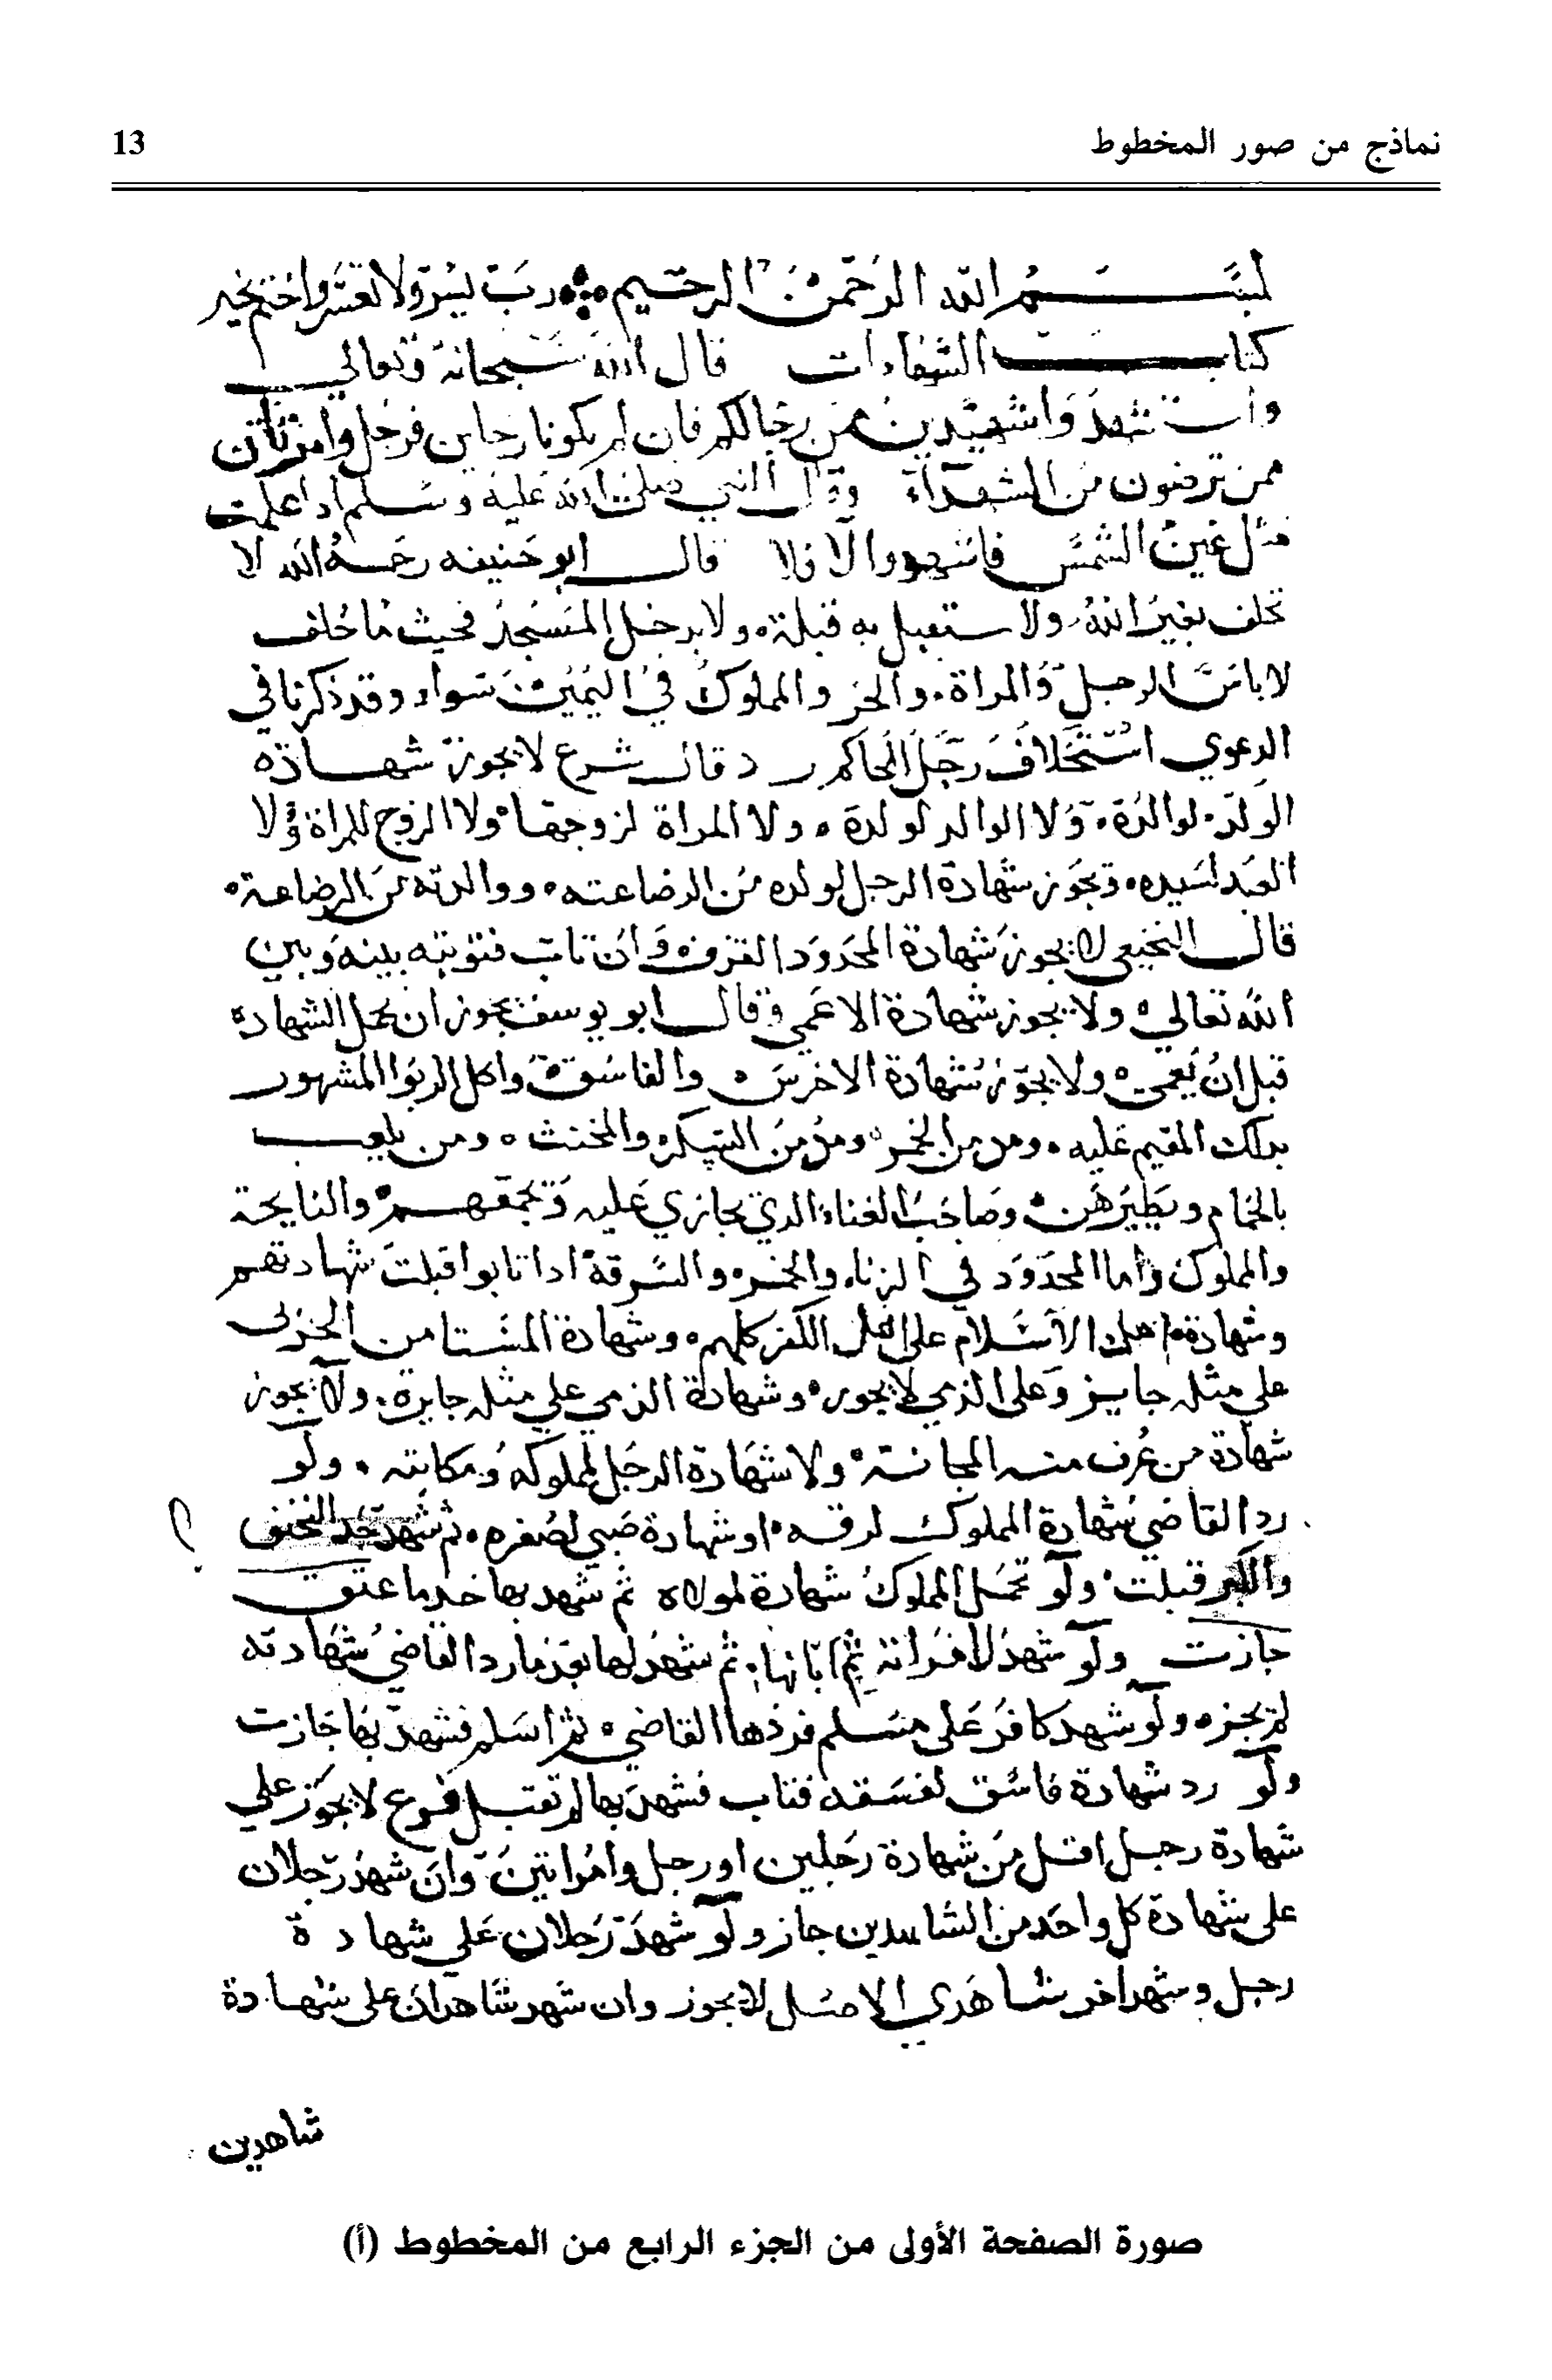 نماذج من صور المخطوط
13
بسم الله الرحمن الرحيم رب يسر ولا تعسر واختم بخير
كتاب الشهادات قال الله سبحانه وتعالى
واستشهدوا شهيدين من رجالكم فان لم يكونا رجلين فرجل وامرتان
ممن ترضون من الشهداء وقال النبي صلى الله عليه وسلم اذا علمت
مثل عين الشمس فاشهد والا فلا قال ابو حنيفه رحمه الله لا
تحلف بغير الله ولا ستقبل به قبلة ولا يدخل المسجد فحيث ما حلف
لا باس الرجل والمراة والحر والمملوك في اليمين سواء وقد ذكرنا في
الدعوي استحلاف رجل الحاكم قال شرع لا يجوز شهادة
الولد لوالده ولا الوالد لولده ولا المراة لزوجها ولا الزوج للمراة ولا
العبد لسيده وتجوز شهادة الرجل لولده من الرضاعته ووالدته من الرضاعة
قال النخعي لا يجوز شهادة المحدود القذف وان تاب فتوبته بينه وبين
الله تعالي ولا يجوز شهادة الاعمي وقال ابو يوسف يجوز ان تحمل الشهادة
قبل ان يعمي ولا يجوز شهادة الاخرس والفاسق واكل الربوا المشهور
بذلك المقيم عليه ومدمن الخمر ومدمن السكر والمخنث ومن يلعب
بالحمام ويطيرهن وصاحب الغناء الذي يجازي عليه وتجمعهم والنايحة
والمملوك واما المحدود في الزناء والخمر والسرقة اذا تابوا قبلت شهادتهم
وشهادة اهل الاسلام على اهل الكفر كلهم وشهادة المستامن الحربي
علي مثله جايز وعلى الذمي لا يجوز وشهادة الذمي علي مثله جايزه ولا يجوز
شهادة من عرف منه المجانة ولا شهادة الرجل لمملوكه ومكاتبه ولو
رد القاضي شهادة المملوك لرقه او شهادة صبي لصغره ثم شهد بعد العتق
والكبر قبلت ولو تحمل المملوك شهادة لمولاه ثم شهد بها بعد ما عتق
جازت ولو شهد لامراته ثم ابانها ثم شهد لها بعد ما رد القاضي شهادته
لم يجزه ولو شهد كافر على مسلم فردها القاضي ثم اسلم فشهد بها جازت
ولو رد شهادة فاسق لفسقه فتاب فشهد بها لم تقبل فرع لا يجوز علي
شهادة رجل اقل من شهادة رجلين او رجل وامراتين وان شهد رجلان
على شهادة كل واحد من الشاهدين جاز ولو شهد رجلان علي شهادة
رجل وشهد اخر شاهدي الاصل لا يجوز وان شهد شاهدان على شهادة
شاهدين
صورة الصفحة الأولى من الجزء الرابع من المخطوط (أ)